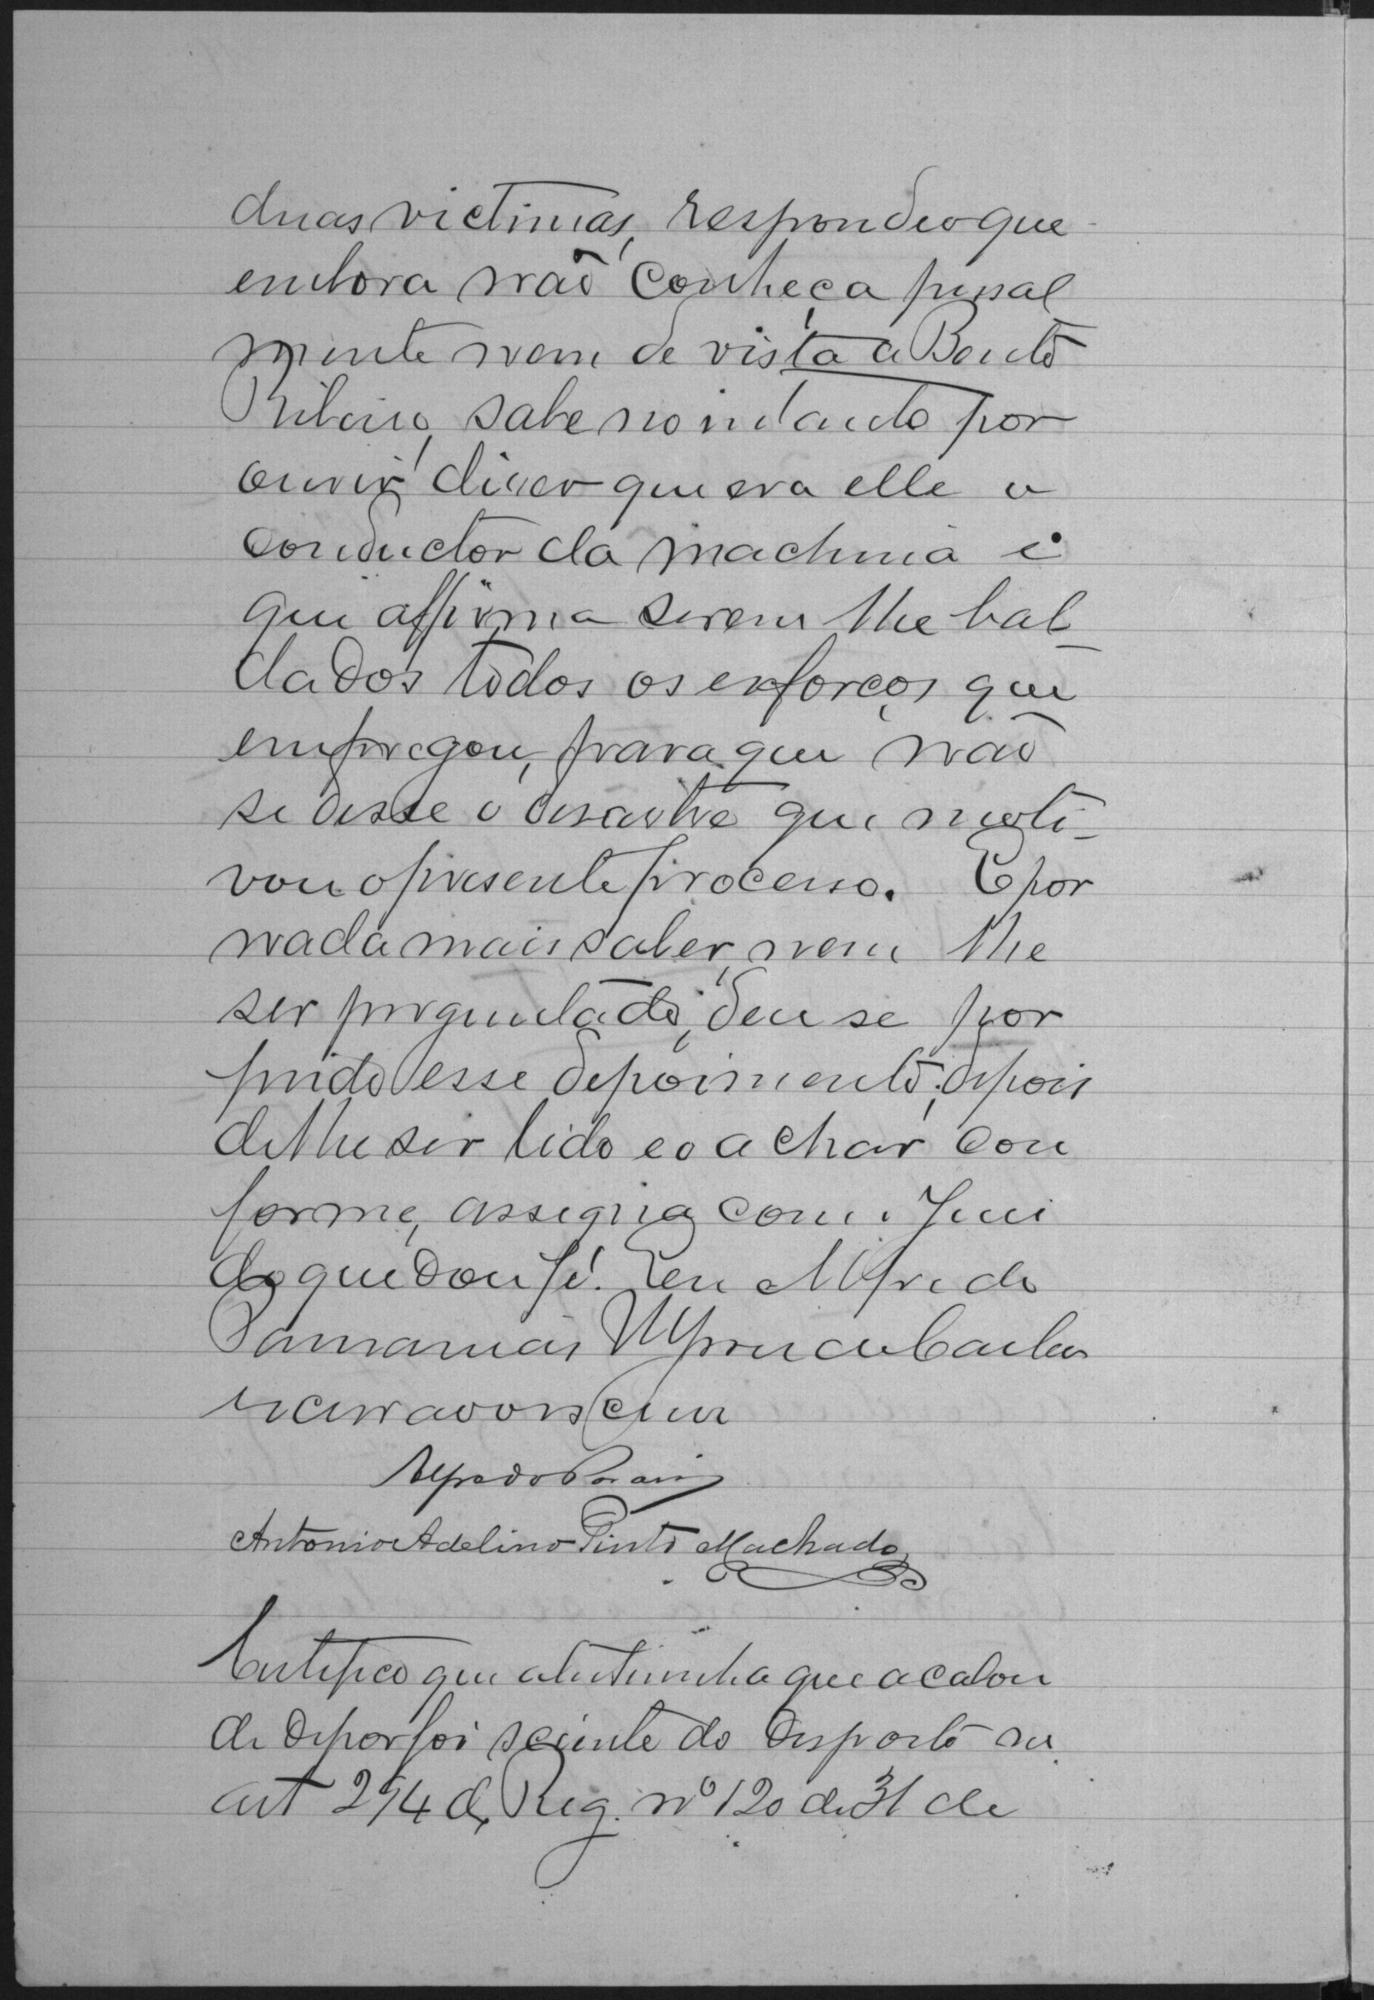 duas victimas, respondeo que
embora não conheça pessoal
mente nem de vista a Bento
Ribeiro, sabe no intanto por
ouvir diser que era elle o
conductor da machina e
que affirma serem lhe bal
dados todos os esforços que
empregou, para que não
se desse o desastre que moti-
vou o presente processo. E por
nada mais saber, nem lhe
ser preguntado, deu se por
findo esse depoimento; depois
de lhe ser lido e o achar con
forme, assigna com o Juis
do que dou fé. Eu Alfredo
escrevi
Alfredo
Antonio Adelino Pinto Machado
Certifico que a testimunha que acabou
de depor foi sciente do desposto no
art 294 do Reg. nº 120 de 31 de